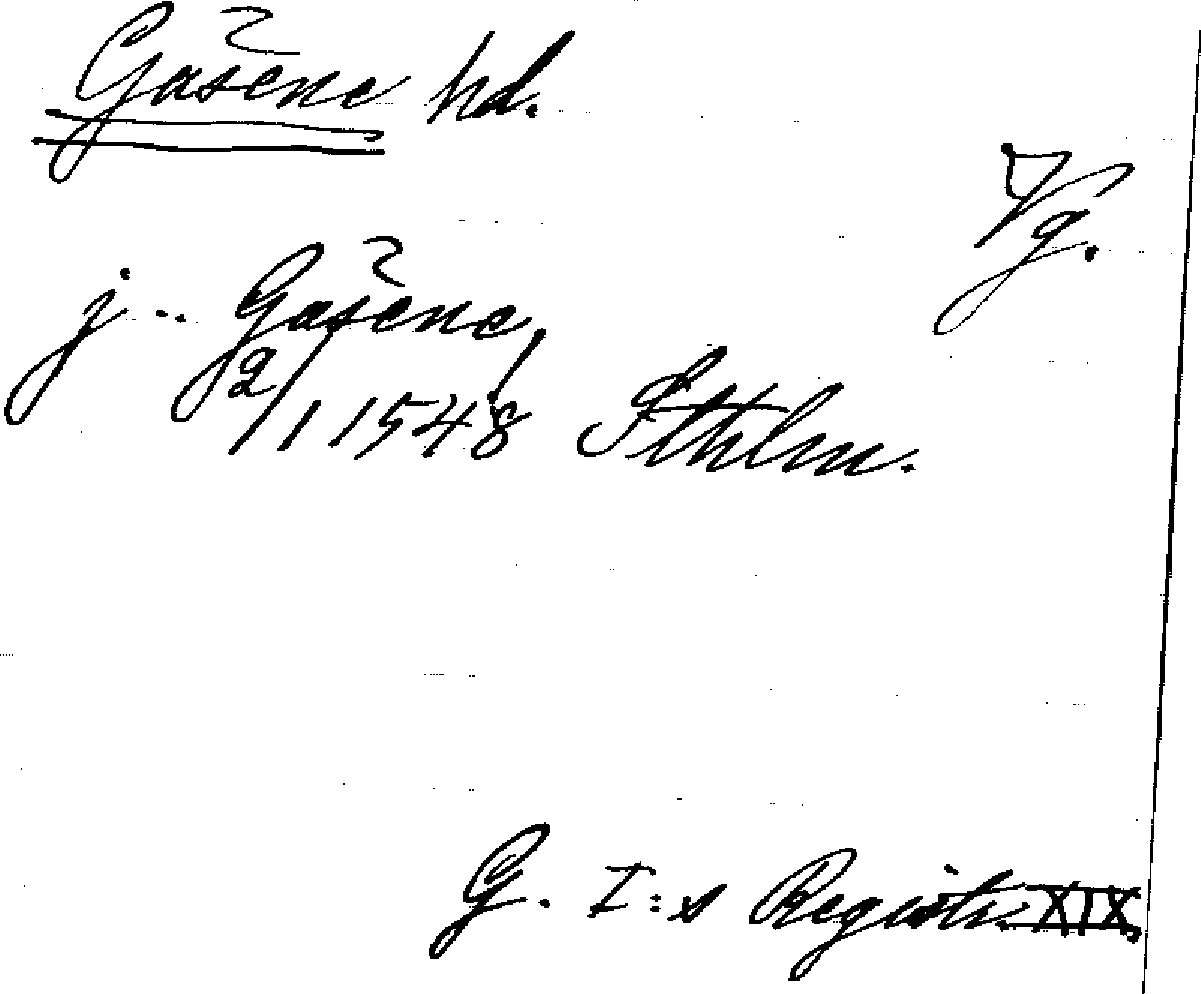 Gašene hd.
Vg.
j .. Gašene,
2/1 1548 Sthlm.
G. I:s Registr. XIX,